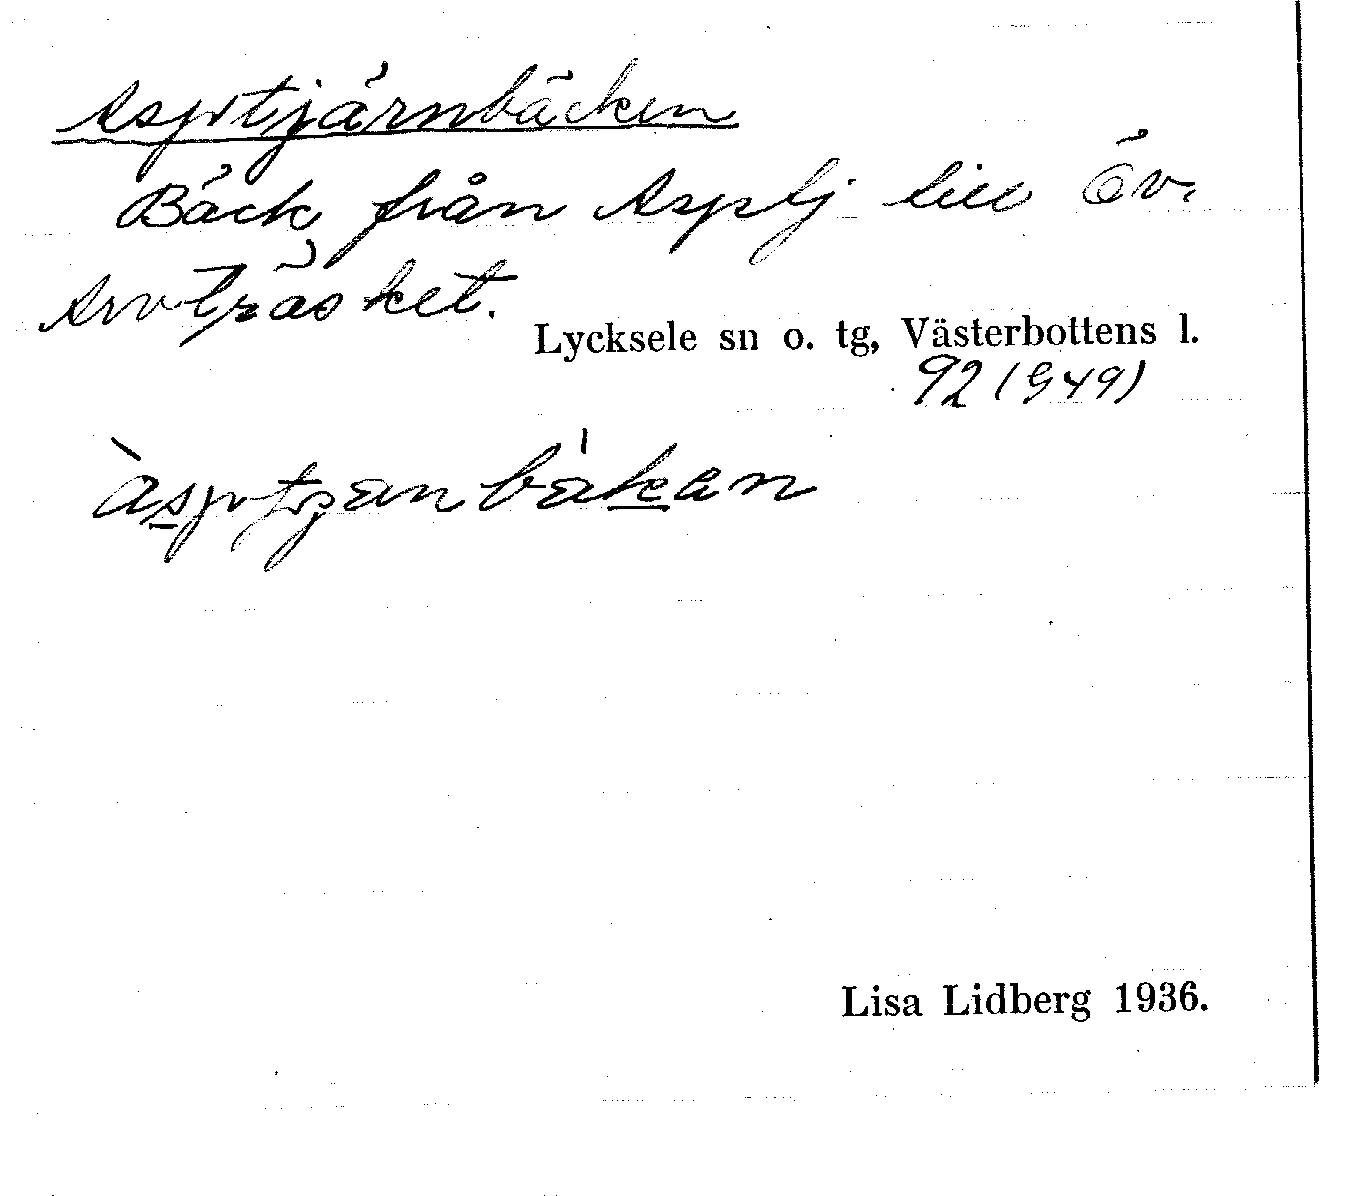 Asptjärnbäcken
Bäck från Asptj till Öv.
Arvträsket.
Lycksele sn o. tg, Västerbottens l.
92 (949)
Lisa Lidberg 1936.